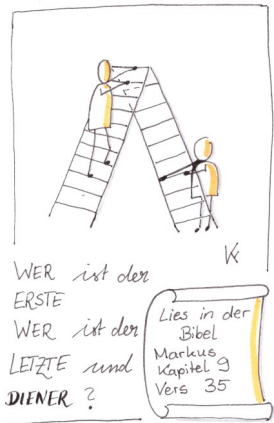 WER ist der
ERSTE
WER ist der
LETZTE und
DIENER?
Lies in der
Bibel
Markus
Kapitel 9
Vers 35